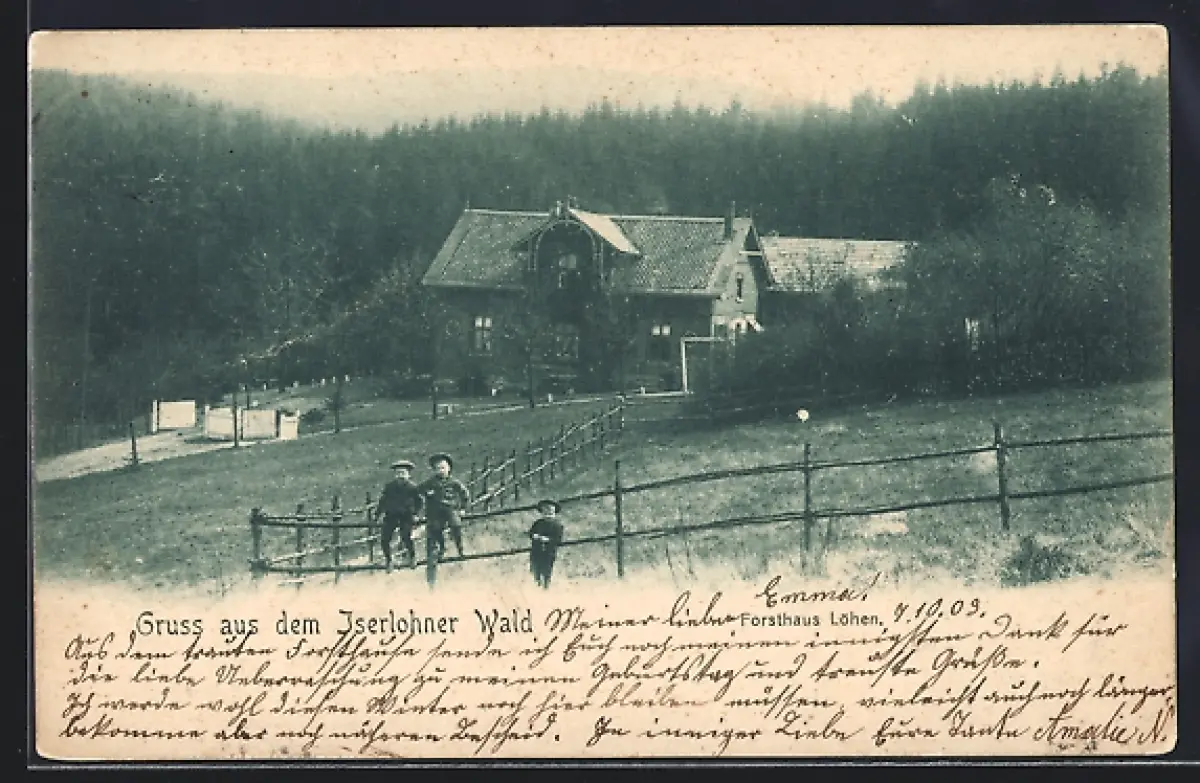 Gruss aus dem Iserlohner Wald
Forsthaus Löhen.
Meiner lieben Emma! 7.10.03.
Aus dem trauten Forsthause sende ich Euch noch meinen innigsten Dank für
die liebe Ueberraschung zu meinem Geburtstag und treuste Grüße.
Ich werde wohl diesen Winter noch hier bleiben müssen, vieleicht auch noch länger,
bekomme aber noch näheren Bescheid. In inniger Liebe Eure Tante Amalie N.